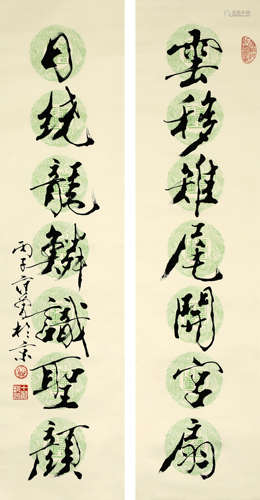 雲移雉尾開宮扇
日繞龍鱗識聖顏
丙子
於京